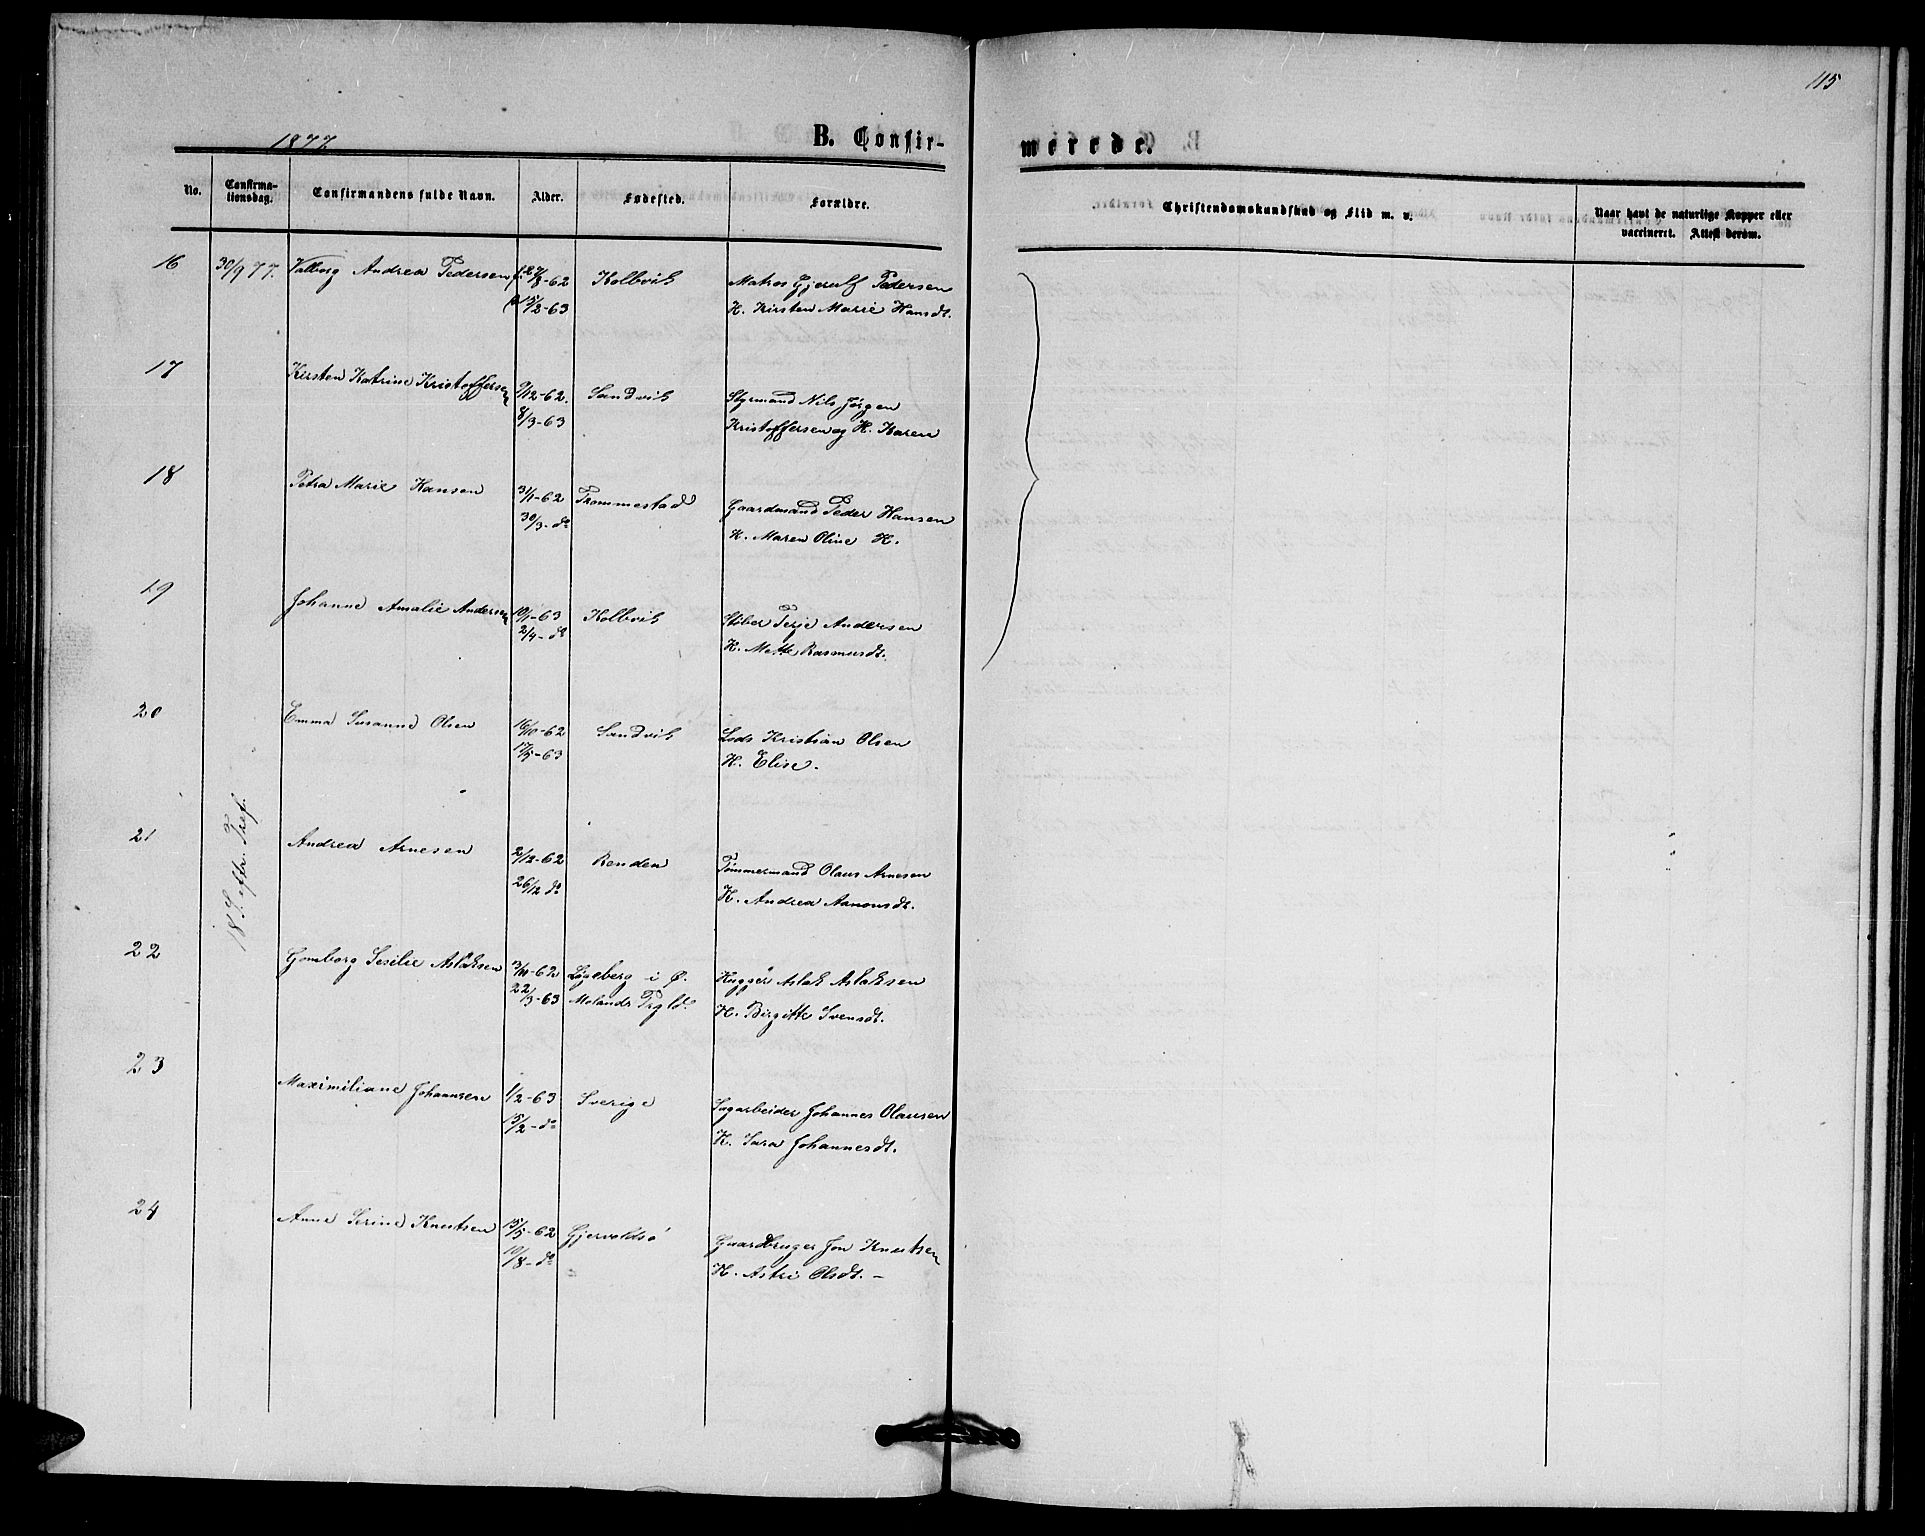 115
1877
B. Confir-
merede.
No.
Confirma-
tionsdag.
Confirmandens fulde Navn.
Alder.
Fødested.
Forældre.
Christendomskundskab og Flid m. v.
Naar havt de naturlige Kopper eller
vaccineret. Attest derom.
16 30/9 77. Valborg Andrea Pedersen 27/8-62 Kolbvik Matros Gjerulf Pedersen
15/2-63 H. Kirsten Marie Hansdt.
17 Kirsten Katrine Kristoffersen 9/12-62. Sandvik Styrmand Nils Jørgen
8/3-63 Kristoffersen og H. Karen
18 Petra Marie Hansen 31/1-62 Trommestad Gaardmand Peder Hansen
30/3-do H. Maren Oline H.
19 Johanne Amalie Andersen 10/1-63 Kolbvik Støber Terje Andersen
2/4-do H. Mette Rasmusdt.
20 Emma Susanne Olsen 16/10-62 Sandvik Lods Kristian Olsen
17/5-63 H. Elise.
18 S. eftr. Tref.
21 Andrea Arnesen 2/12-62 Renden Tømmermand Olaus Arnesen
26/12 do H. Andrea Aanonsdt.
22 Gomborg Sesilie Aslaksen 3/11-62 Løgeberg i Ø. Aslak Aslaksen
22/3-63 Molands Prgld. H. Birgitte Svensdt.
23 Maximiliane Johannsen 1/2-63 Sverige Sagarbeider Johannes Olausen
15/2-do H. Sara Johannesdt.
24 Anne Serine Knutsen 15/5-62 Gjervoldsø Gaardbruger Jon Knutsen
10/8-do H. Astri Olsdt. -